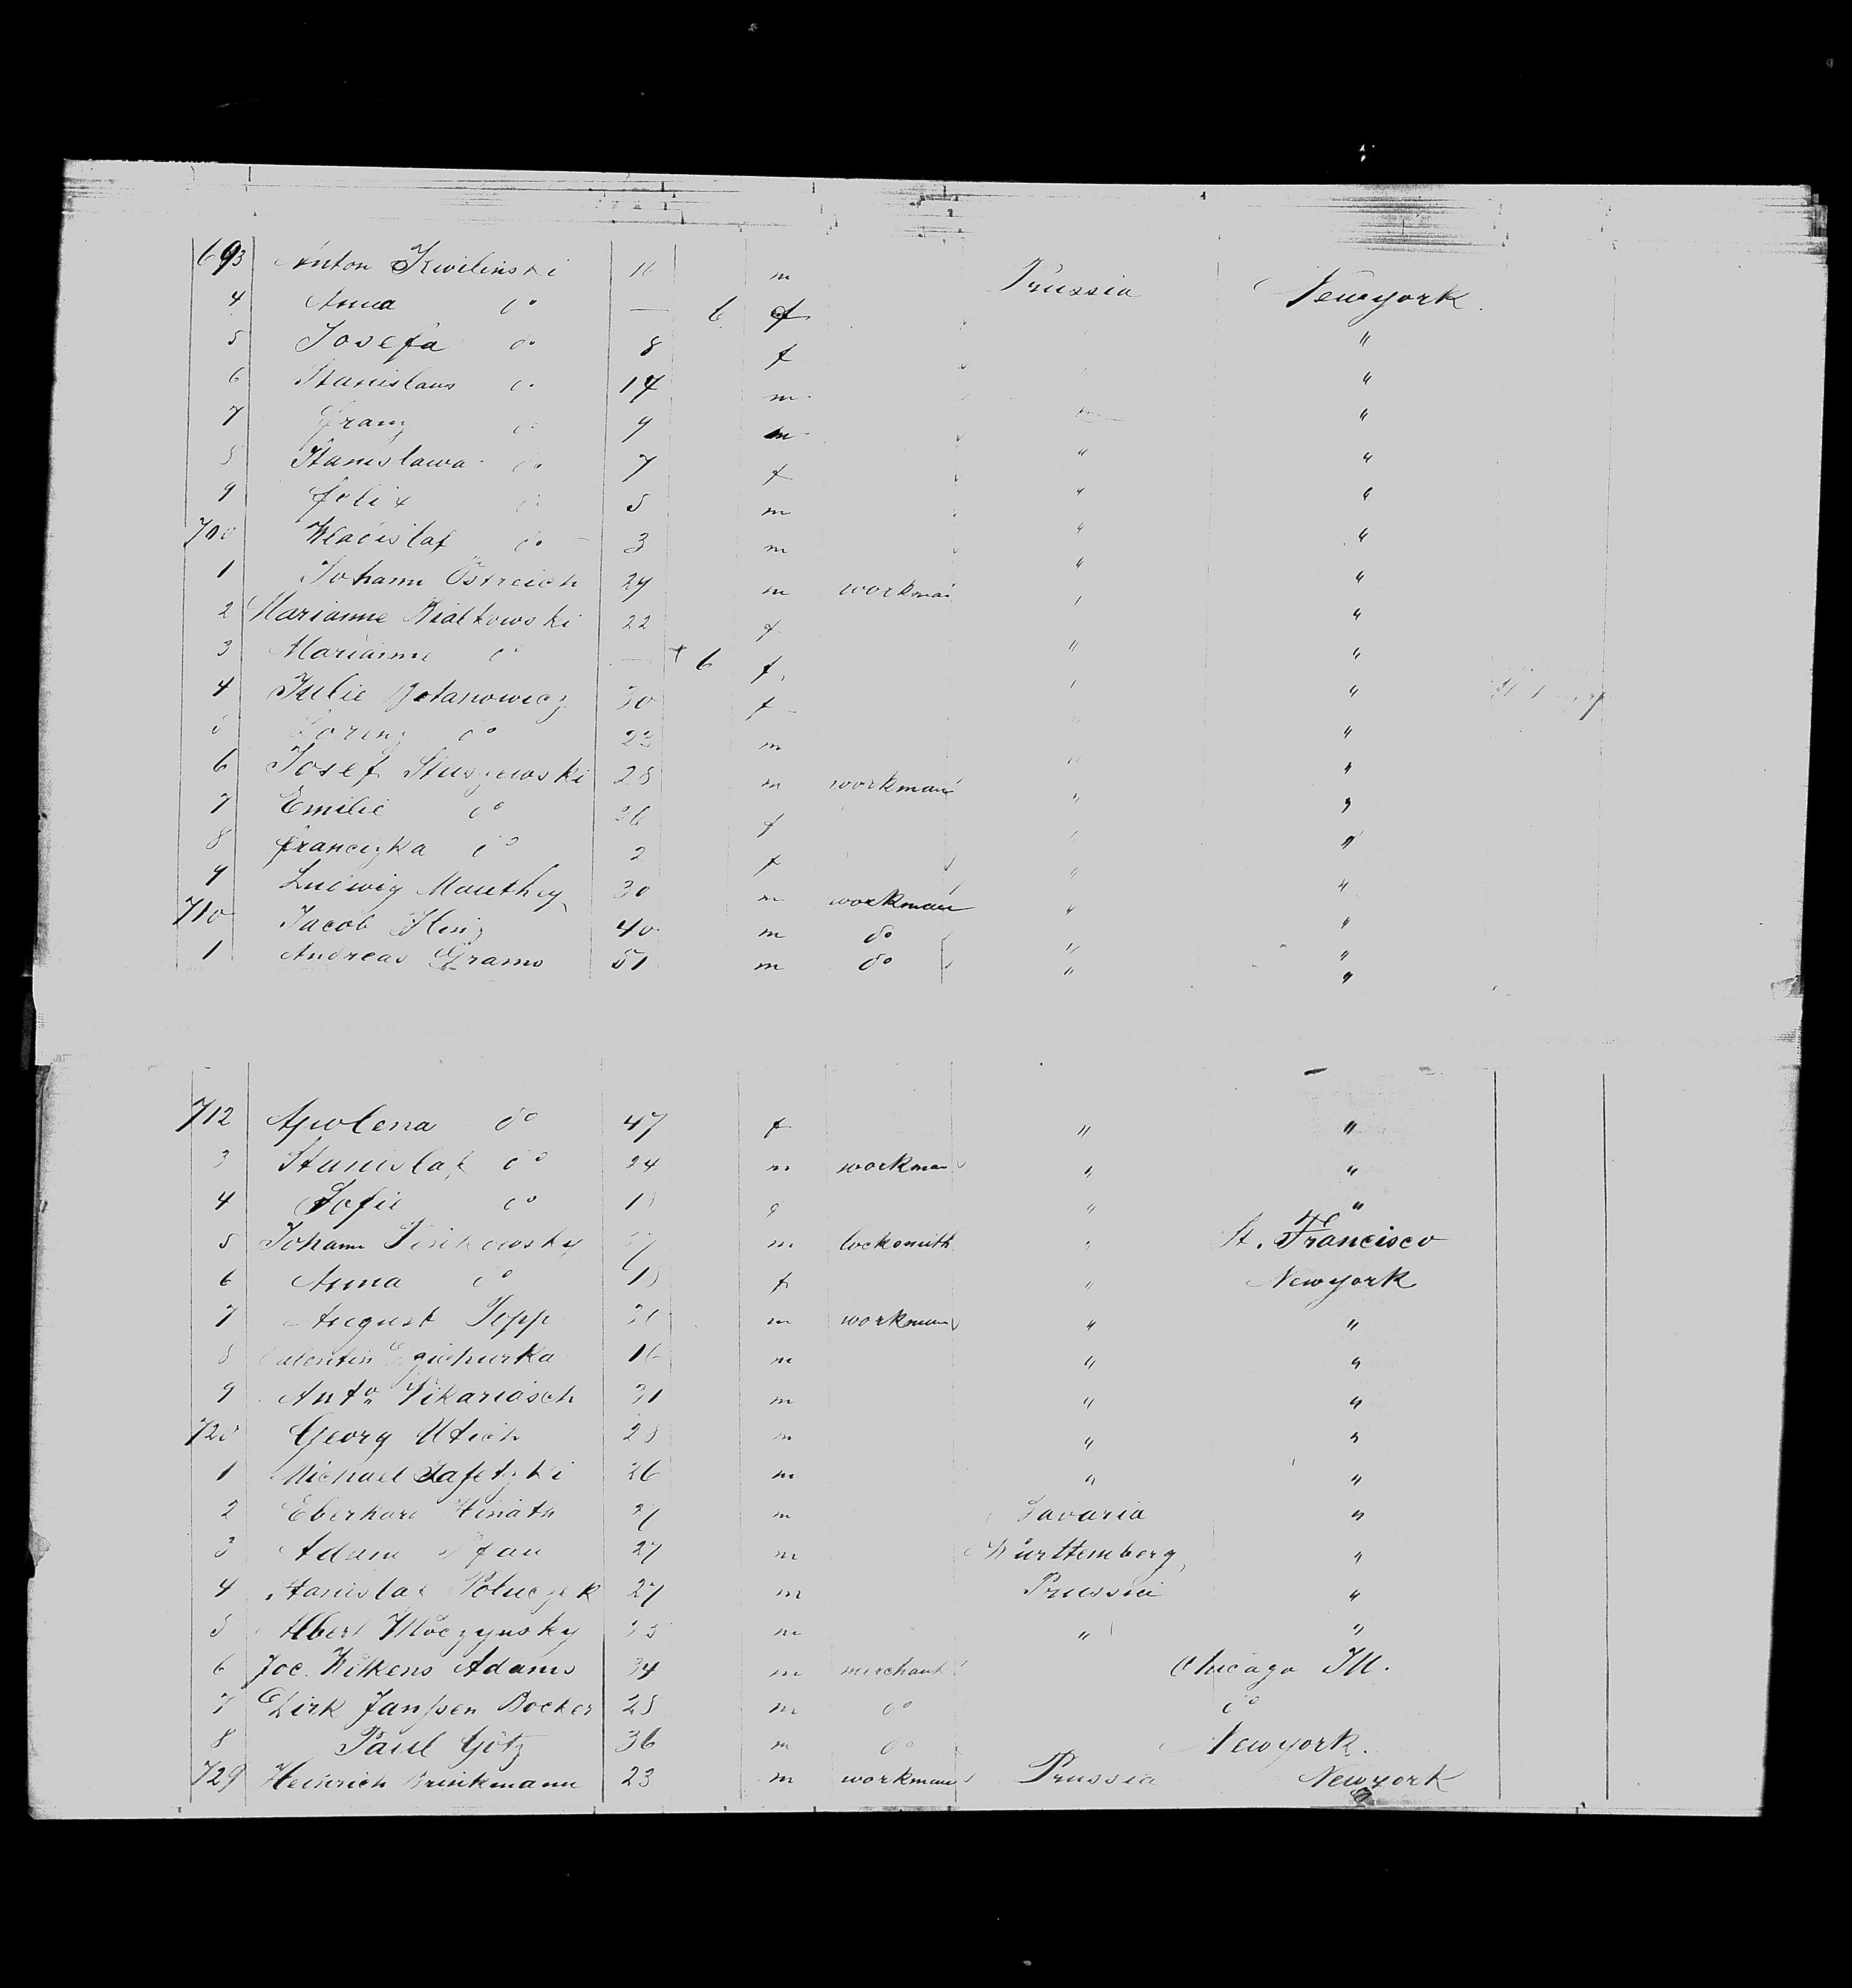 693 Anton Kwilinski m Prussia Newyork
4 Anna do — 6 f
5 Josefa do 8 f "
6 Stanislaus do 14 m "
7 Franz do 9 m "
8 Stanislawa do 7 f " "
9 Felix do 5 m " "
700 Wladislaf do 3 m " "
1 Johann Östreich 29 m workman " "
2 Marianne Bialkowski 22 f "
3 Marianne do — + 6 f " "
4 Julie 30 f "
5 Lorenz do 23 m "
6 Josef Stuszewski 28 m workman " "
7 Emilie do 26 f " "
8 Franczyka do 2 f " "
9 Ludwig Manthey 30 m workman " "
710 Jacob 40 m do " "
1 Andreas Grams 51 m do " "
712 Apolena do 47 f " "
3 Stanislaf do 24 m workman " "
4 Sofie do " "
5 Johann m locksmith " St. Francisco
6 Anna do f " Newyork
7 August m workman " "
8 16 m " "
9 Anton Pikariosch 31 m " "
720 Georg Utich 28 m " "
1 Michael 26 m " "
2 Eberhard m Bavaria "
3 Adam 27 m Württemberg "
4 Stanislaf 27 m Prussia "
5 Albert m " "
6 Joc. Wilkens Adams 34 m merchant Chicago Ill.
7 Dirk Janssen Bocker 28 m do do
8 Paul Götz 36 m do Newyork.
729 Heinrich Brinkmann 23 m workman Prussia Newyork